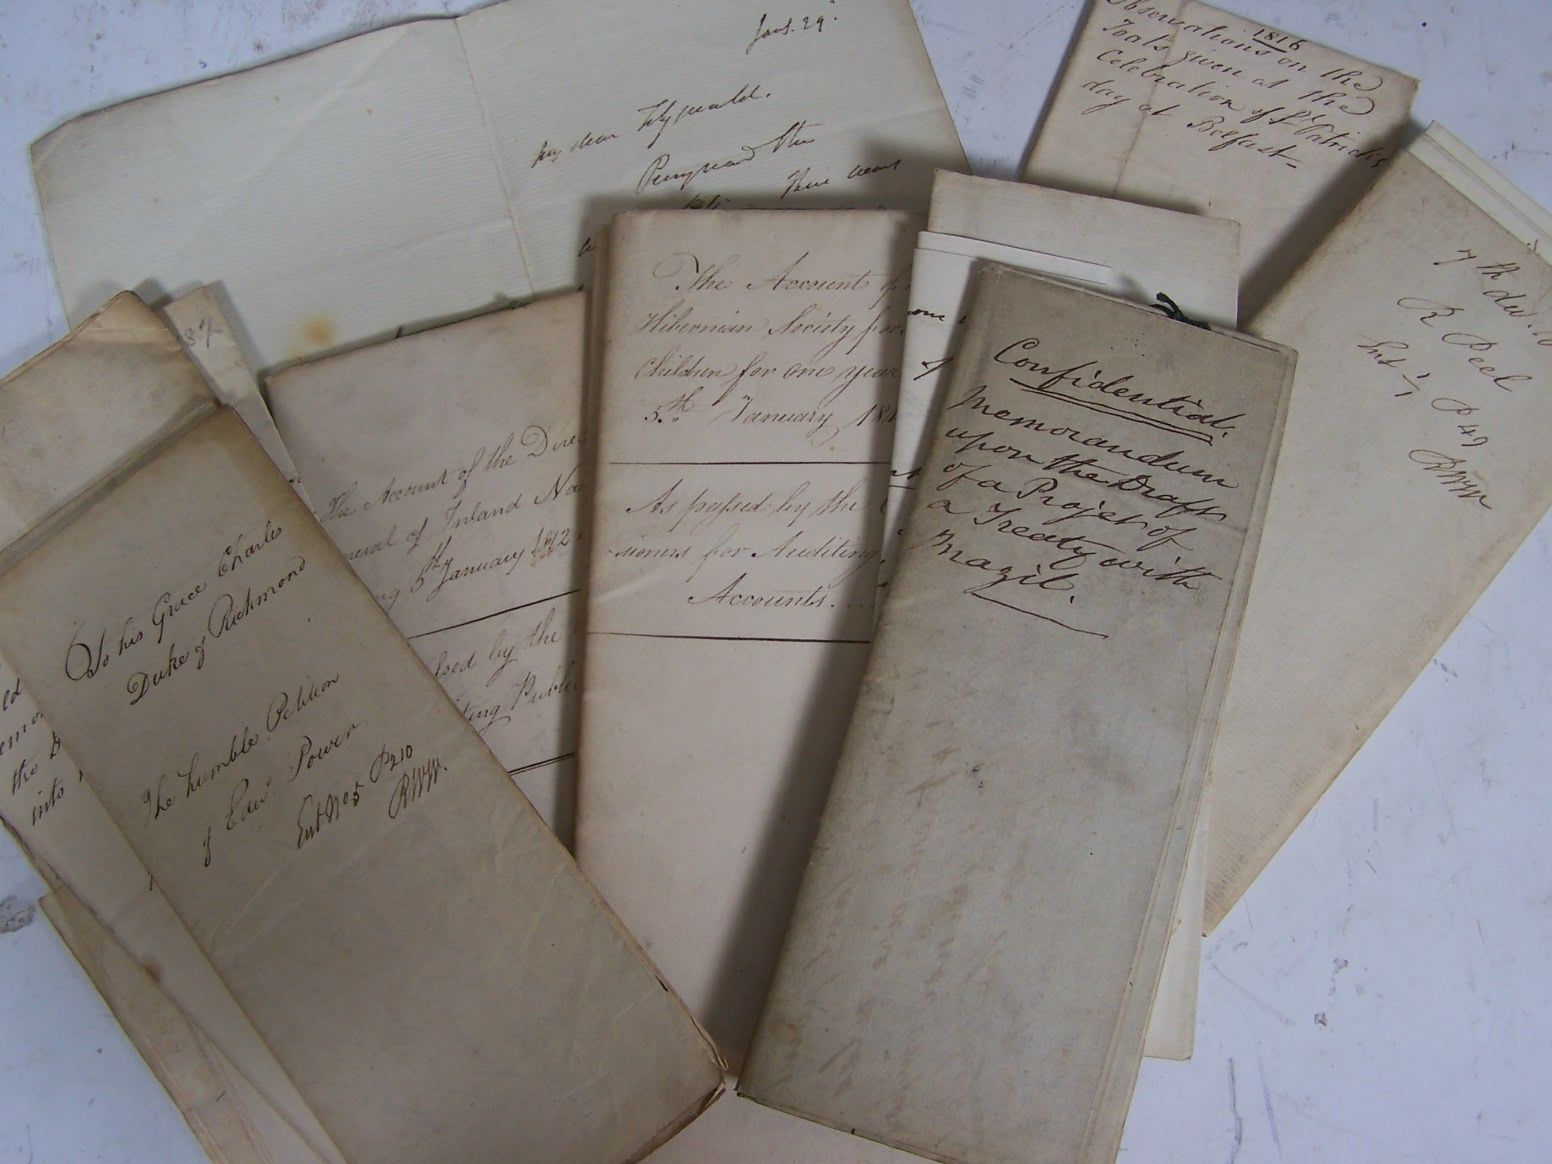 Jans. 29.
My dear Fitzgerald.
have
1816
Observations on the
Toasts given at the
Celebration of St Patricks
day at Belfast
7th
R Peel
P 49
The Account of
Hibernian Society for
Children for one year
5th January 181
As passed by the
sioners for Auditing
Accounts.
Confidential.
Memorandum
upon the Draft
of a Projet of
a Treaty with
Brazil.
87
The Account of the Direc
neral of Inland Na
ng 5th January 1812
by the
ting Public
To his Grace Charles
Duke of Richmond
The humble Petition
of Edwd Power
Ent No 5 P 210
the
into